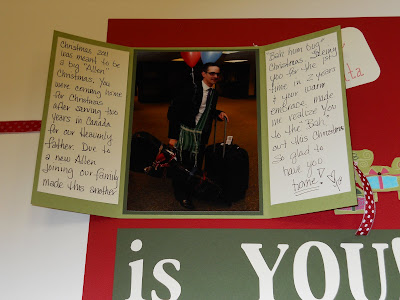 Christmas 2011
was meant to be
a big "Allen"
Christmas, you
were coming home
for Christmas
after serving two
years in Canada
for our Heavenly
Father. Due to
a new Allen
joining our family
made this another
"Bah hum bug"
Christmas. Seeing
you for the 1st
time in 2 years
& your warm
embrace made
me realize you
to the "Bah"
out this Christmas
so glad to
have you
home!
is YOU